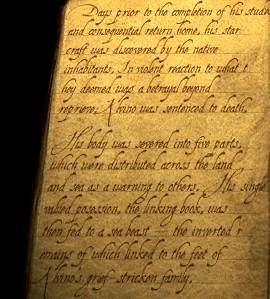 Days prior to the completion of his studi
and consequential return home, his star
craft was discovered by the native
inhabitants. In violent reaction to what t
hey deemed was a betrayal beyond
reprieve, A hno was sentenced to death.
His body was severed into five parts,
which were distributed across the land
and sea as a warning to others. His single
valued posession, the linking book, was
then fed to a sea beast — the inverted r
emains of which linked to the feet of
grief stricken family.